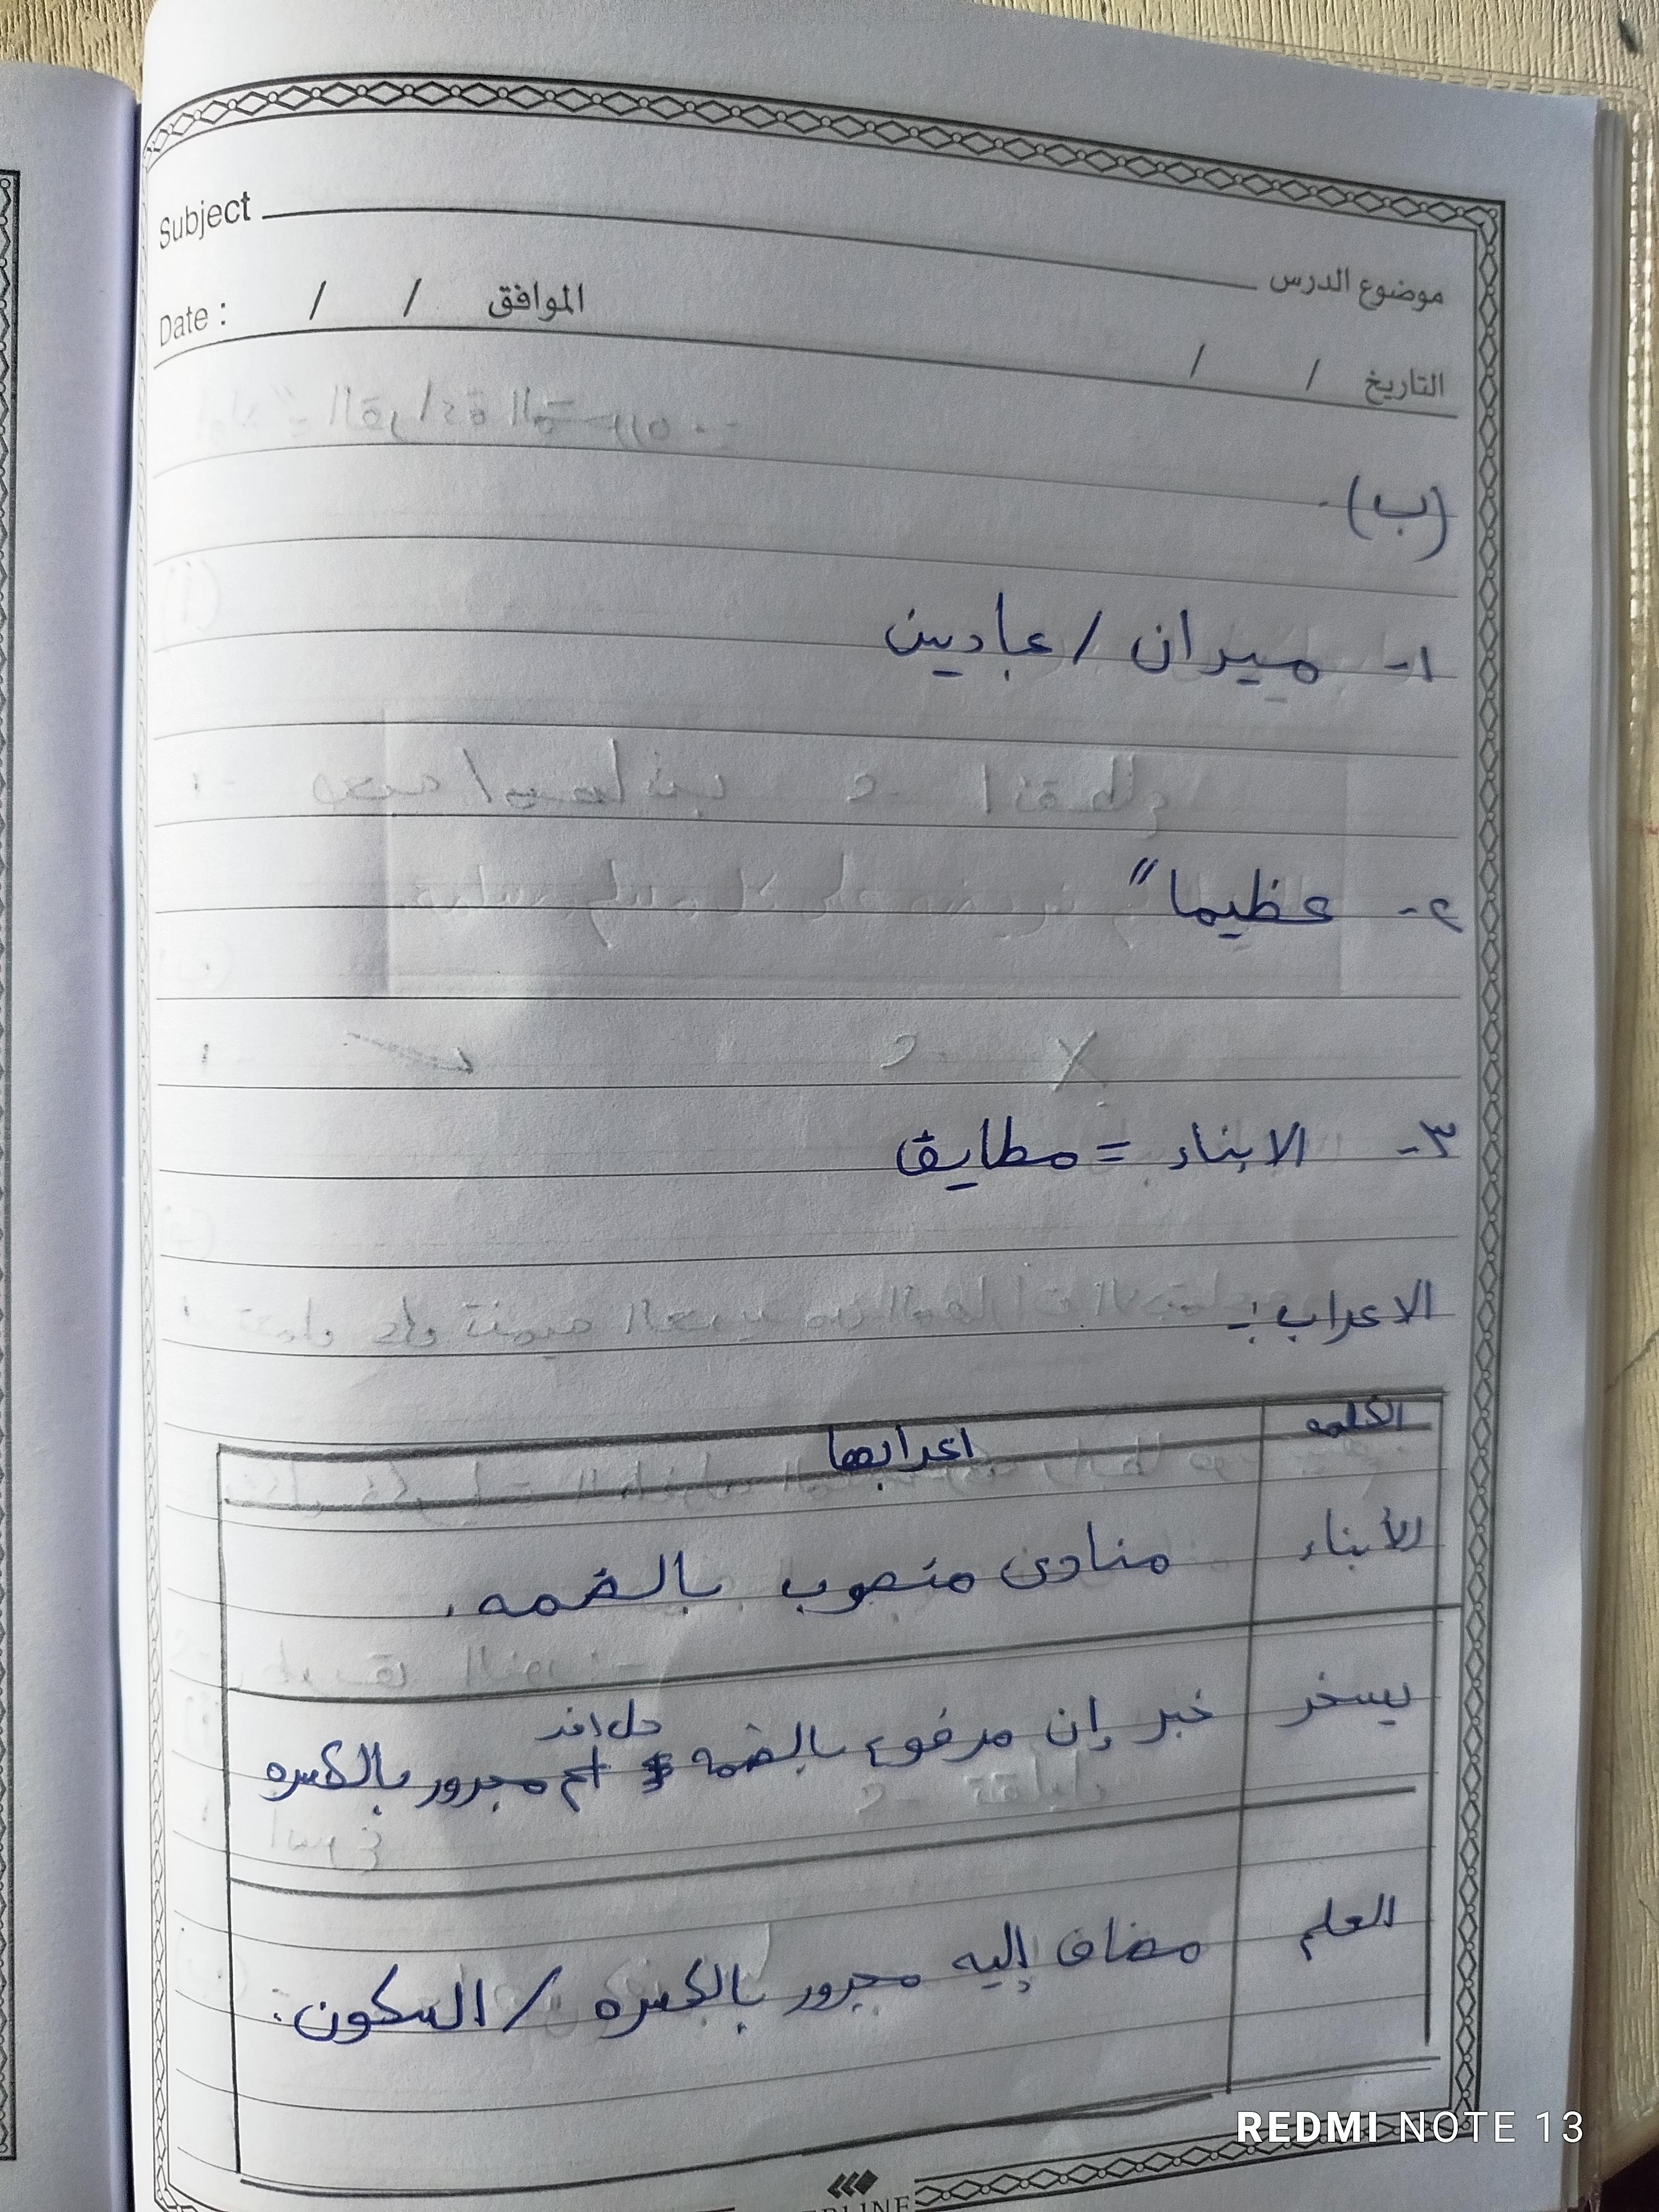 Subject موضوع الدرس
Date : / / الموافق التاريخ / /
(ب)
١- ميران / عادين
٢- عظيما"
٣- الابناء = مطايق
الاعراب :-
الكلمه اعرابها
الأبناء منادى منصوب بالضمه.
حل اخر
يسخر خبر إن مرفوع بالضمه مجرور بالكسره
العلم مضاف إليه مجرور بالكسره / السكون.
REDMI NOTE 13